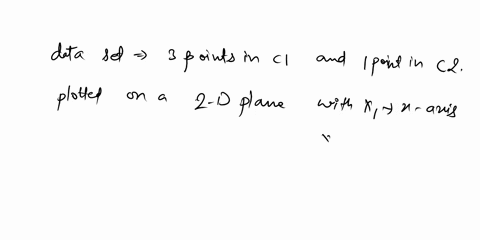 data set ⇒ 3 points in C1 and 1 point in C2.
plotted on a 2-D plane with x₁ → x-axis